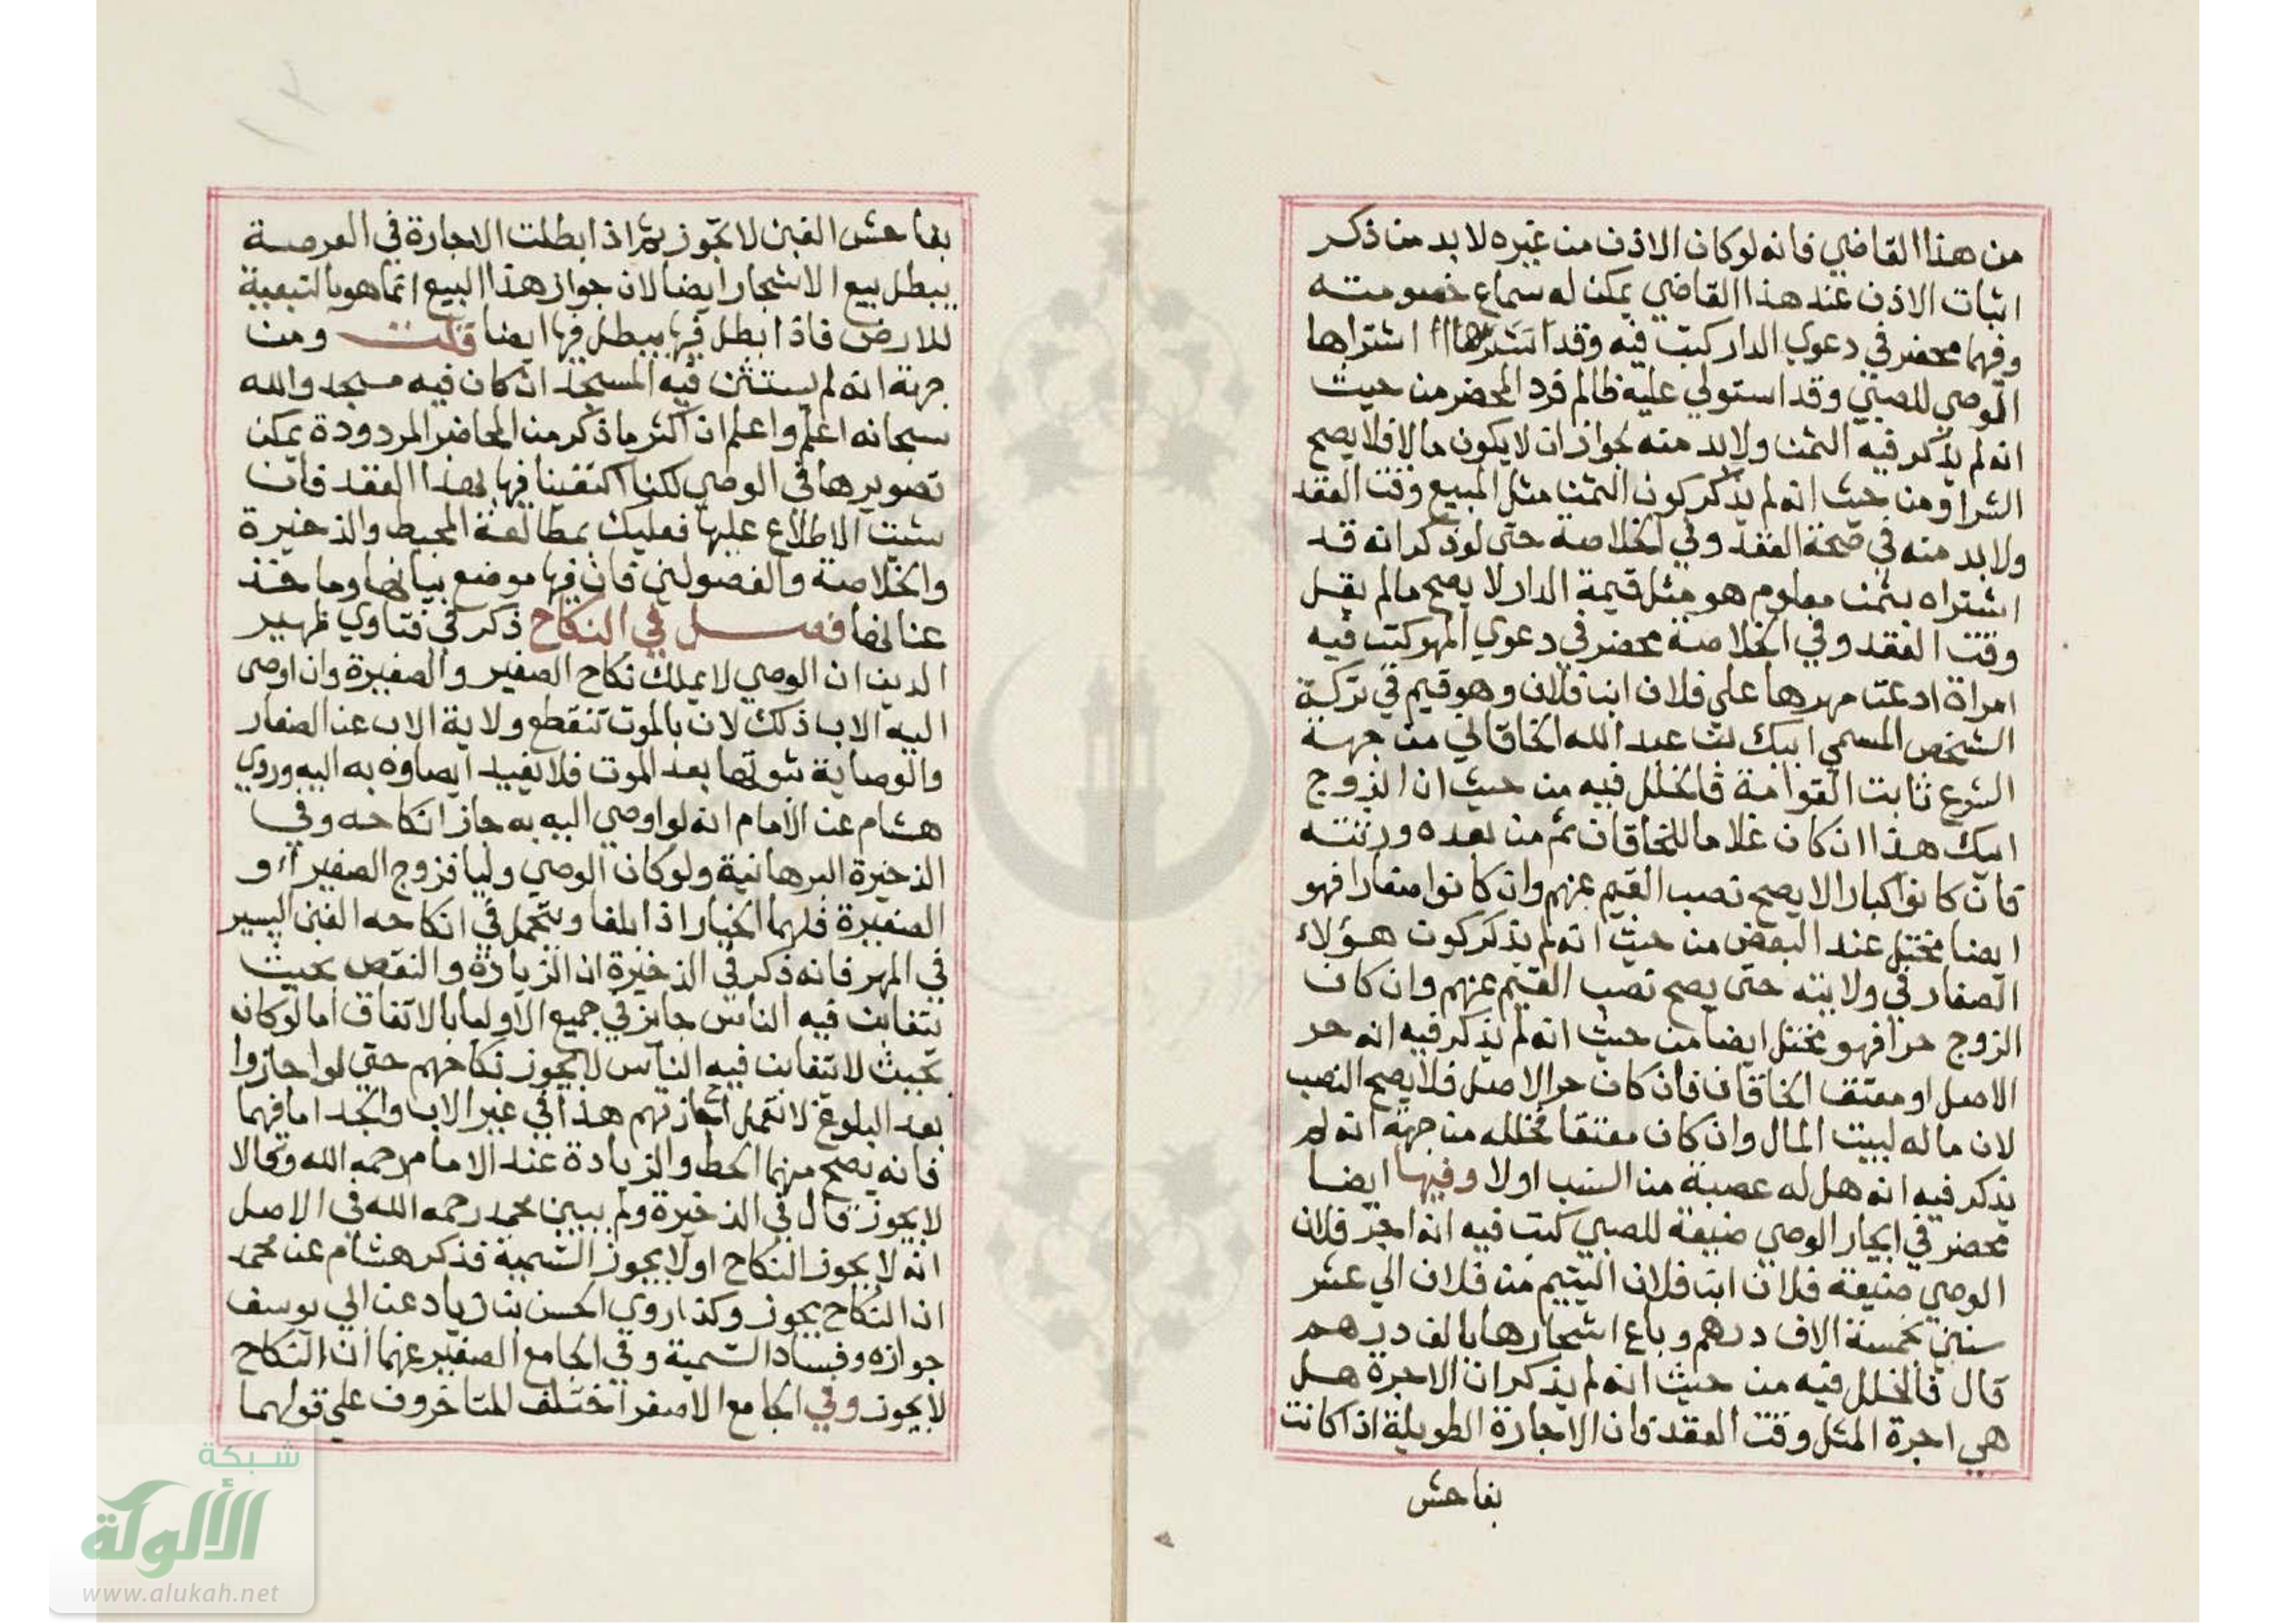 من هذا القاضي فانه لو كان الاذن من غيره لا بد من ذكر
اثبات الاذن عند هذا القاضي يمكن له سماع خصومته
وفيها محضر في دعوي الدار كتب فيه وقد اشتراها
الوصي للصبي وقد استولي عليه ظالم فرد المحضر من حيث
انه لم يذكر فيه الثمن ولا بد منه لجواز ان لا يكون مالا فلا يصح
الشرا ومن حيث انه لم يذكر كون الثمن مثل المبيع وقت العقد
ولا بد منه في صحة العقد وفي الخلاصة حتى لو ذكر انه قد
اشتراه بثمن معلوم هو مثل قيمة الدار لا يصح ما لم يقل
وقت العقد وفي الخلاصة محضر في دعوي المهر كتب فيه
امراة ادعت مهرها علي فلان ابن فلان وهو قيم في تركة
الشخص المسمي ايبك بن عبد الله الخاقاني من جهة
الشرع ثابت القوامة فالخلل فيه من حيث ان الزوج
ايبك هذا ان كان غلاما للخاقان ثم من بعده ورثته
فان كانوا كبارا لا يصح نصب القيم عنهم وان كانوا صغارا فهو
ايضا مختل عند البعض من حيث انه لم يذكر كون هؤلاء
الصغار في ولايته حتى يصح نصب القيم عنهم وان كان
الزوج حرا فهو مختل ايضا من حيث انه لم يذكر فيه انه حر
الاصل او معتق الخاقان فان كان حر الاصل فلا يصح النصب
لان ماله لبيت المال وان كان معتقا فخلله من جهة انه لم
يذكر فيه انه هل له عصبة من النسب او لا وفيها ايضا
محضر في ايجار الوصي ضيعة للصبي كتب فيه انه اجر فلان
الوصي ضيعة فلان ابن فلان اليتيم من فلان الي عشر
سنين بخمسة الاف درهم وباع اشجارها بالف درهم
قال فالخلل فيه من حيث انه لم يذكر ان الاجرة هل
هي اجرة المثل وقت العقد وان الاجارة الطويلة اذا كانت
بفاحش
بفاحش الغبن لا تجوز ثم اذا بطلت الاجارة في العرصة
يبطل بيع الاشجار ايضا لان جواز هذا البيع انما هو بالتبعية
للارض فاذا بطل فيها يبطل فيها ايضا قلت ومن
جهة انه لم يستثن فيه المسجد ان كان فيه مسجد والله
سبحانه اعلم واعلم ان اكثر ما ذكر من المحاضر المردودة يمكن
تصويرها في الوصي لكنا اكتفينا فيها بهذا العقد فان
شئت الاطلاع عليها فعليك بمطالعة المحيط والذخيرة
والخلاصة والفصولين فان فيها موضع بيانها وما خذ
عنانها فصل في النكاح ذكر في فتاوي ظهير
الدين ان الوصي لا يملك نكاح الصغير والصغيرة وان اوصى
اليه الاب ذلك لان بالموت تنقطع ولاية الاب عن الصغار
والوصاية ثبوتها بعد الموت فلا يفيد ايصاوه به اليه وروي
هشام عن الامام انه لو اوصي اليه به جاز انكاحه وفي
الذخيرة البرهانية ولو كان الوصي وليا فزوج الصغير او
الصغيرة فلهما الخيار اذا بلغا ويتحمل في انكاحه الغبن اليسير
في المهر فانه ذكر في الذخيرة ان الزيادة والنقص بحيث
يتغابن فيه الناس جايز في جميع الاوليا بالاتفاق اما لو كان
بحيث لا يتغابن فيه الناس لا يجوز نكاحهم حتي لو اجازوا
بعد البلوغ لا تعمل اجازتهم هذا في غير الاب والجد اما فيهما
فانه يصح منهما الحط والزيادة عند الامام رحمه الله وقالا
لا يجوز قال في الذخيرة ولم يبين محمد رحمه الله في الاصل
انه لا يجوز النكاح او لا يجوز التسمية فذكر هشام عن محمد
ان النكاح يجوز وكذا روي الحسن بن زياد عن ابي يوسف
جوازه وفساد التسمية وفي الجامع الصغير عنهما ان النكاح
لا يجوز وفي الجامع الاصغر اختلف المتاخرون علي قولهما
شبكة
الألوكة
www.alukah.net